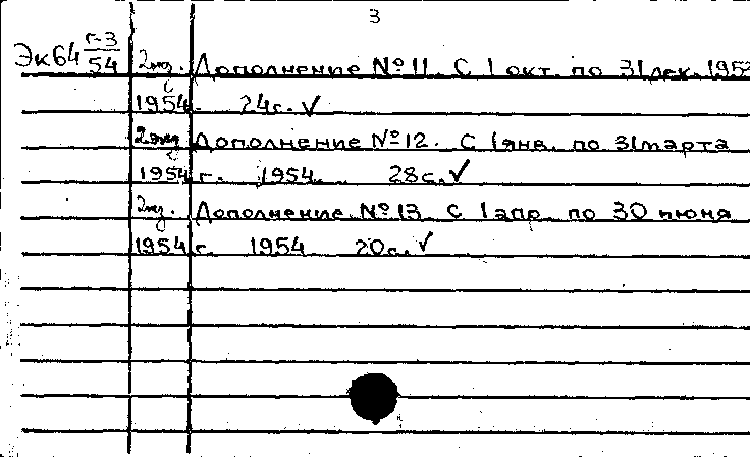 3
Эк64 г-3/54 2 экз. Дополнение № 11. С 1 окт. по 31 дек. 1953
1954 г. 24 с. ✓
2 экз. Дополнение № 12. С 1 янв. по 31 марта
1954 г. 1954. 28 с. ✓
2 экз. Дополнение № 13. С 1 апр. по 30 июня
1954 г. 1954 20 с. ✓